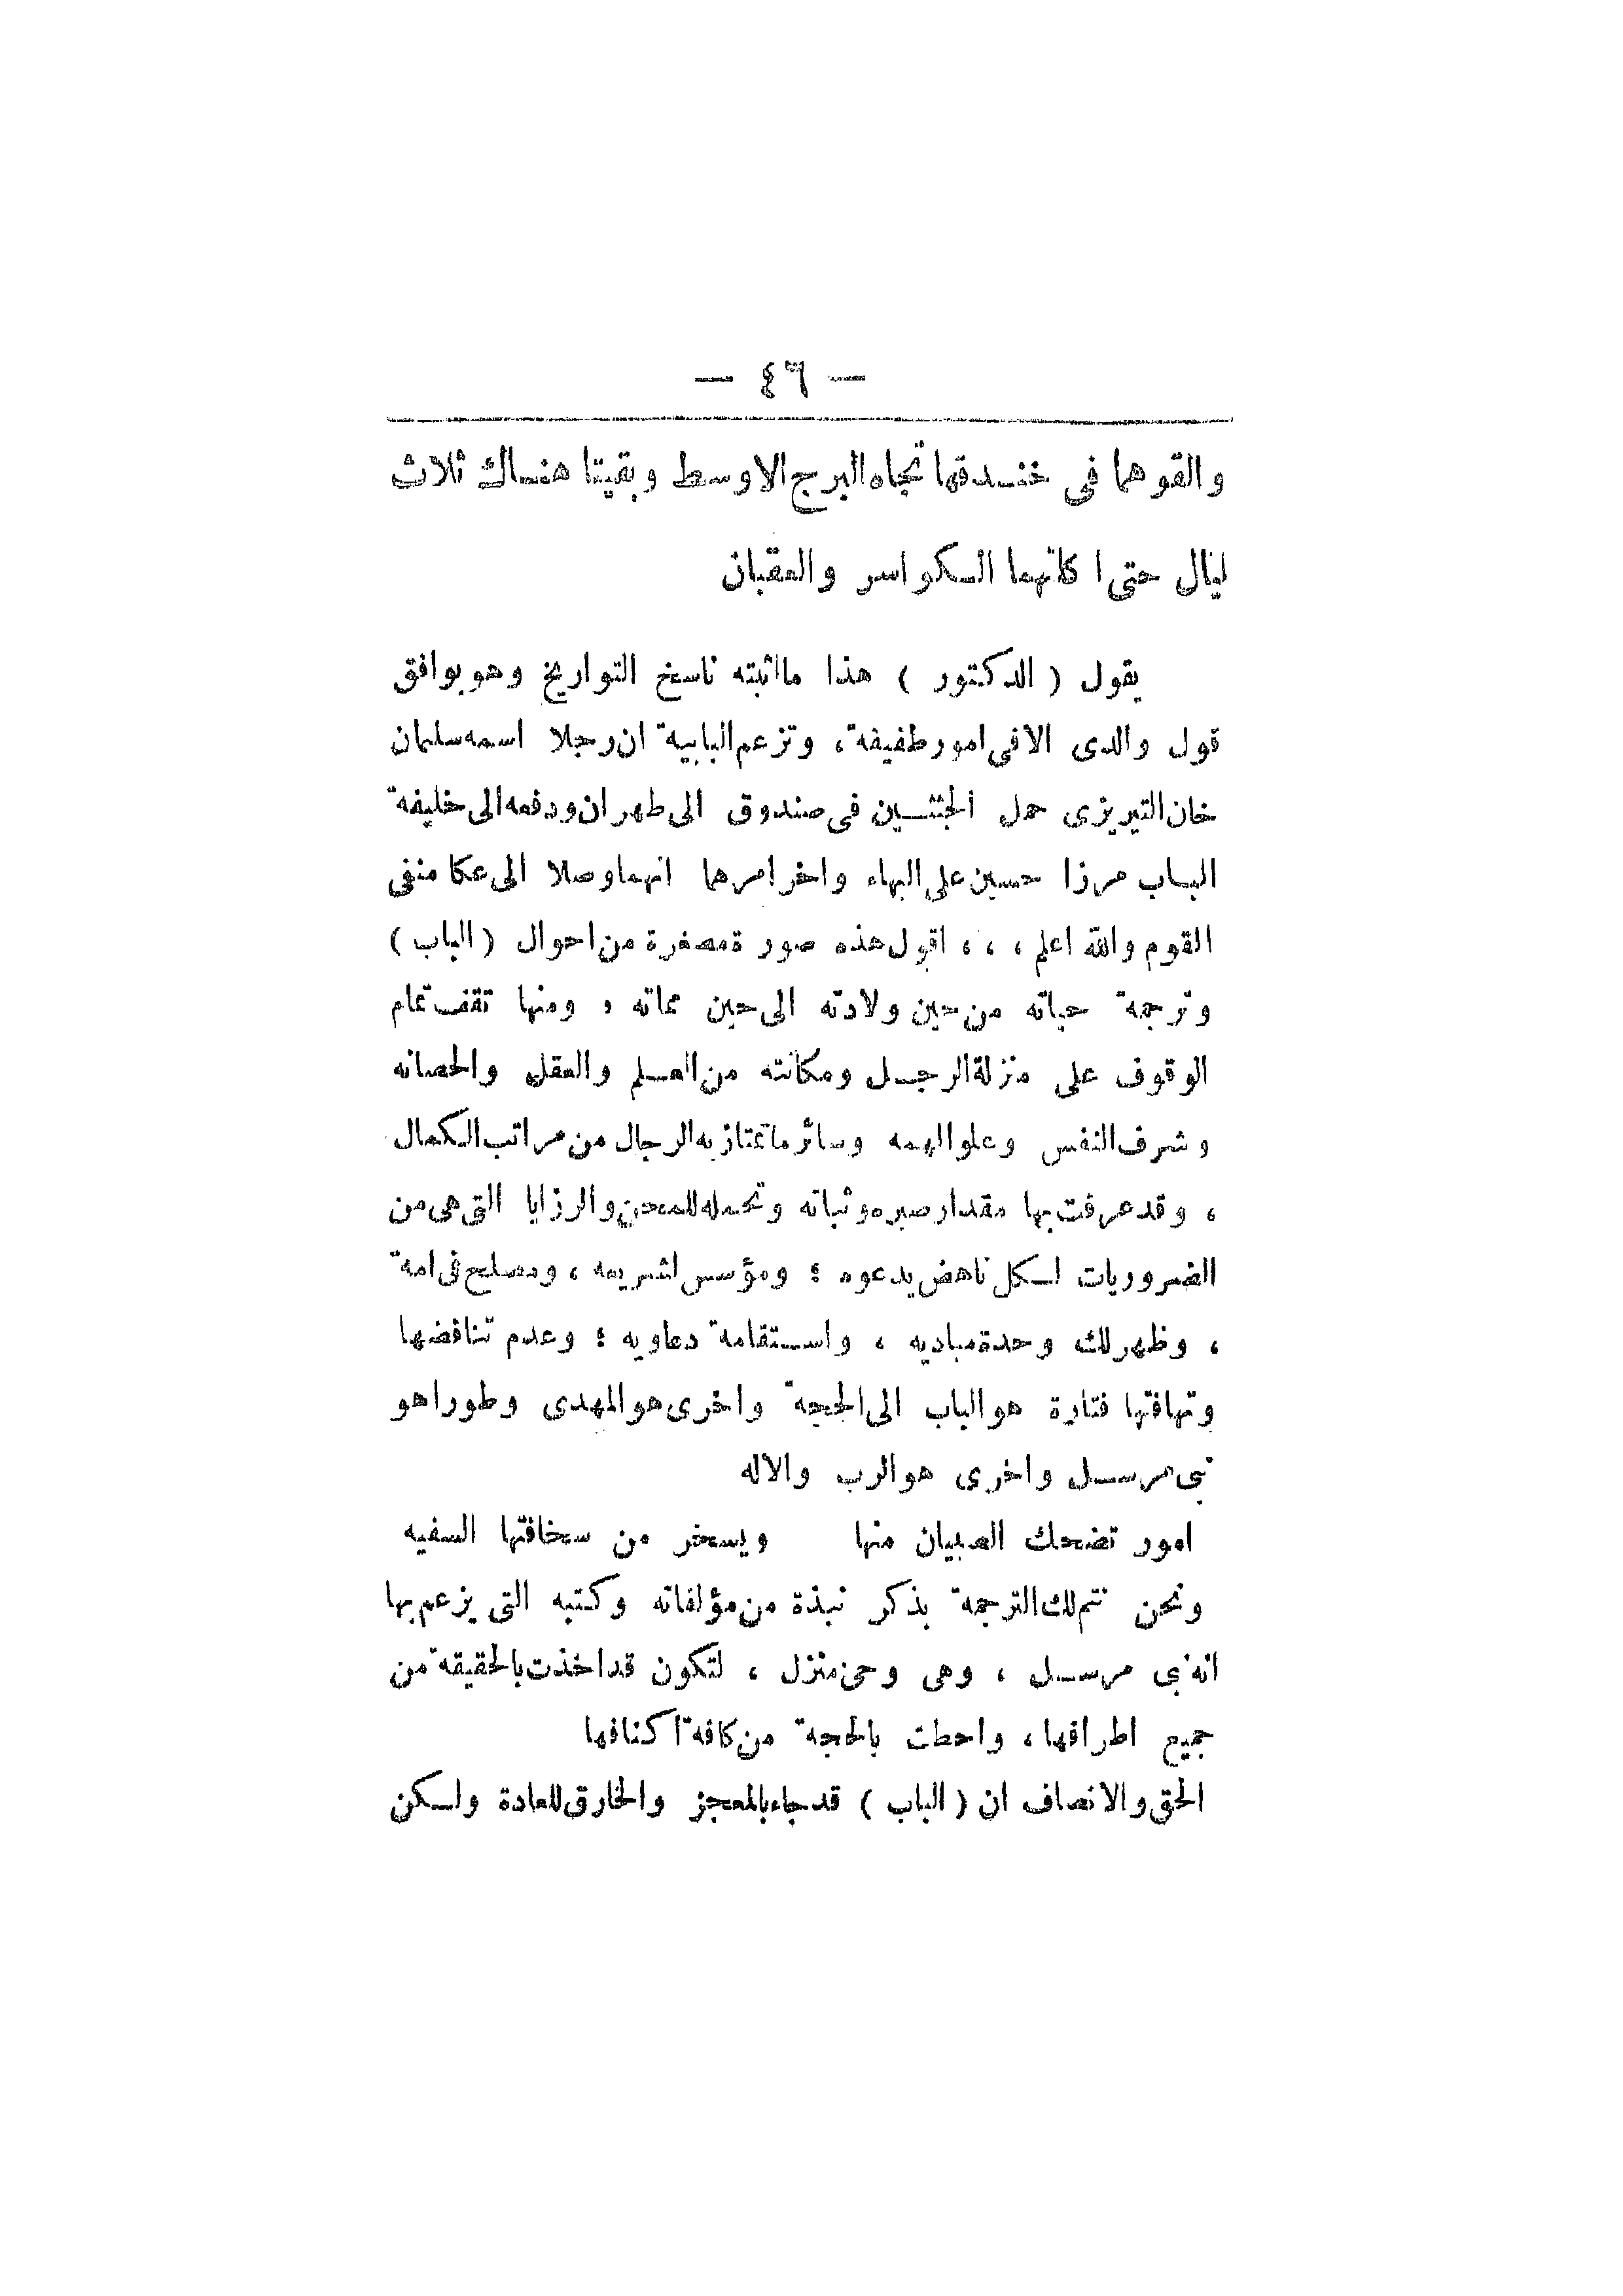 — ٤٦ —
والقوهما في خندقها تجاه البرج الاوسط وبقيتا هناك ثلاث
ليال حتى اكلتهما الكواسر والعقبان
يقول ( الدكتور ) هذا ما اثبته ناسخ التواريخ وهو يوافق
قول والدى الا فى امور طفيفة ، وتزعم البابية ان رجلا اسمه سليمان
خان التبريزى حمل الجثتين فى صندوق الى طهران ودفعه الى خليفة
الباب مرزا حسين على البهاء واخر امرهما انهما وصلا الى عكا منفى
القوم والله اعلم ، ، ، اقول هذه صورة مصغرة من احوال ( الباب )
وترجمة حياته من حين ولادته الى حين مماته ، ومنها تقف تمام
الوقوف على منزلة الرجل ومكانته من العلم والعقل والحصانه
وشرف النفس وعلو الهمه وسائر ما تمتاز به الرجال من مراتب الكمال
، وقد عرفت بها مقدار صبره وثباته وتحمله للمحن والرزايا التى هى من
الضروريات لكل ناهض بدعوه ؛ ومؤسس لشريعه ، ومصلح فى امة
، وظهر لك وحدة مباديه ، واستقامة دعاويه ؛ وعدم تناقضها
وتهافتها فتارة هو الباب الى الحجة واخرى هو المهدى وطورا هو
نبى مرسل واخرى هو الرب والاله
امور تضحك الصبيان منها ويسخر من سخافتها السفيه
ونحن نتم لك الترجمة بذكر نبذة من مؤلفاته وكتبه التى يزعم بها
انه نبى مرسل ، وهى وحى منزل ، لتكون قد اخذت بالحقيقة من
جميع اطرافها ، واحطت بالحجة من كافة اكنافها
الحق والانصاف ان ( الباب ) قد جاء بالمعجز والخارق للعادة ولكن